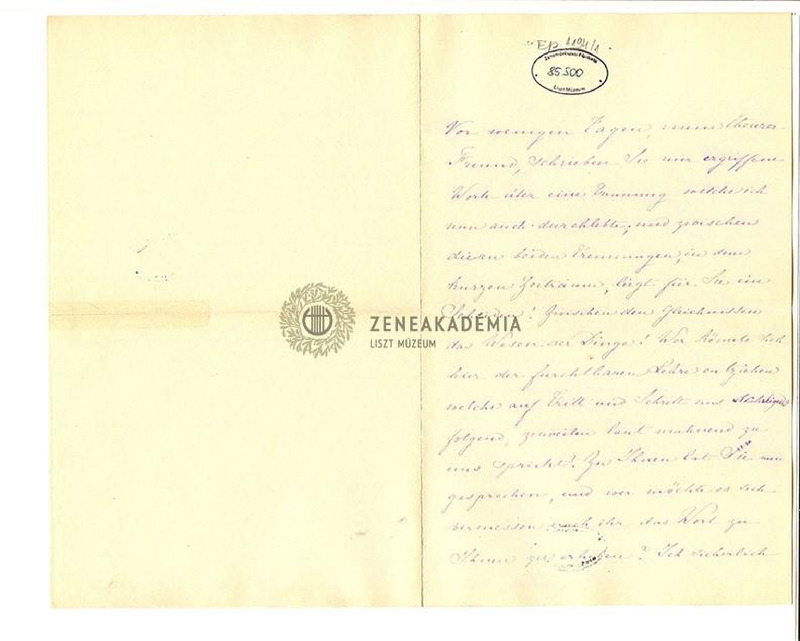 Ep 1194/1
Zeneművészeti Főiskola
85.500
Liszt Múzeum
Vor wenigen Tagen, mein theurer
Freund, schrieben Sie mir ergriffene
Worte über eine Trennung welche ich
nun auch durchlebte, und zwischen
diesen beiden Trennungen, in dem
kurzen Zeitraum, liegt für Sie ein
! Zwischen den Gleichnissen
das Wesen der Dinge! Wer könnte sich
hier der furchtbaren Lehre entziehen
welche auf Tritt und Schritt uns
folgend, zuweilen laut mahnend zu
uns spricht? Zu Ihnen hat Sie nun
gesprochen, und wer möchte es sich
vermessen nach ihr das Wort zu
Ihnen zu erheben? Ich sicherlich
ZENEAKADÉMIA
LISZT MÚZEUM